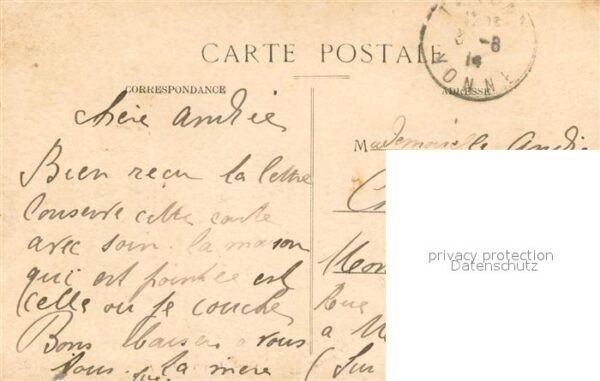 CARTE POSTALE
CORRESPONDANCE
ADRESSE
-8
14
YONNE
chère Andrée
Bien reçu la lettre
Conserve cette carte
avec soin. la maison
qui est pointée est
celle ou je couche
Bons baisers a vous
tous. la mère
Mademoiselle
Rue
a
(Sur
privacy protection
Datenschutz